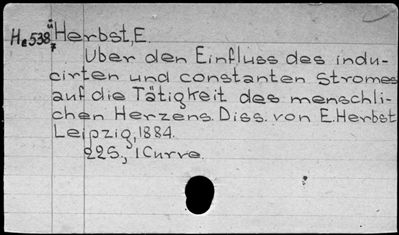 He538,ü7 Herbst, E.
Uber den Einfluss des indu-
cirten und constanten Stromes
auf die Tätigkeit des menschli-
chen Herzens. Diss. von E. Herbst
Leipzig, 1884.
22S., 1 Curve.